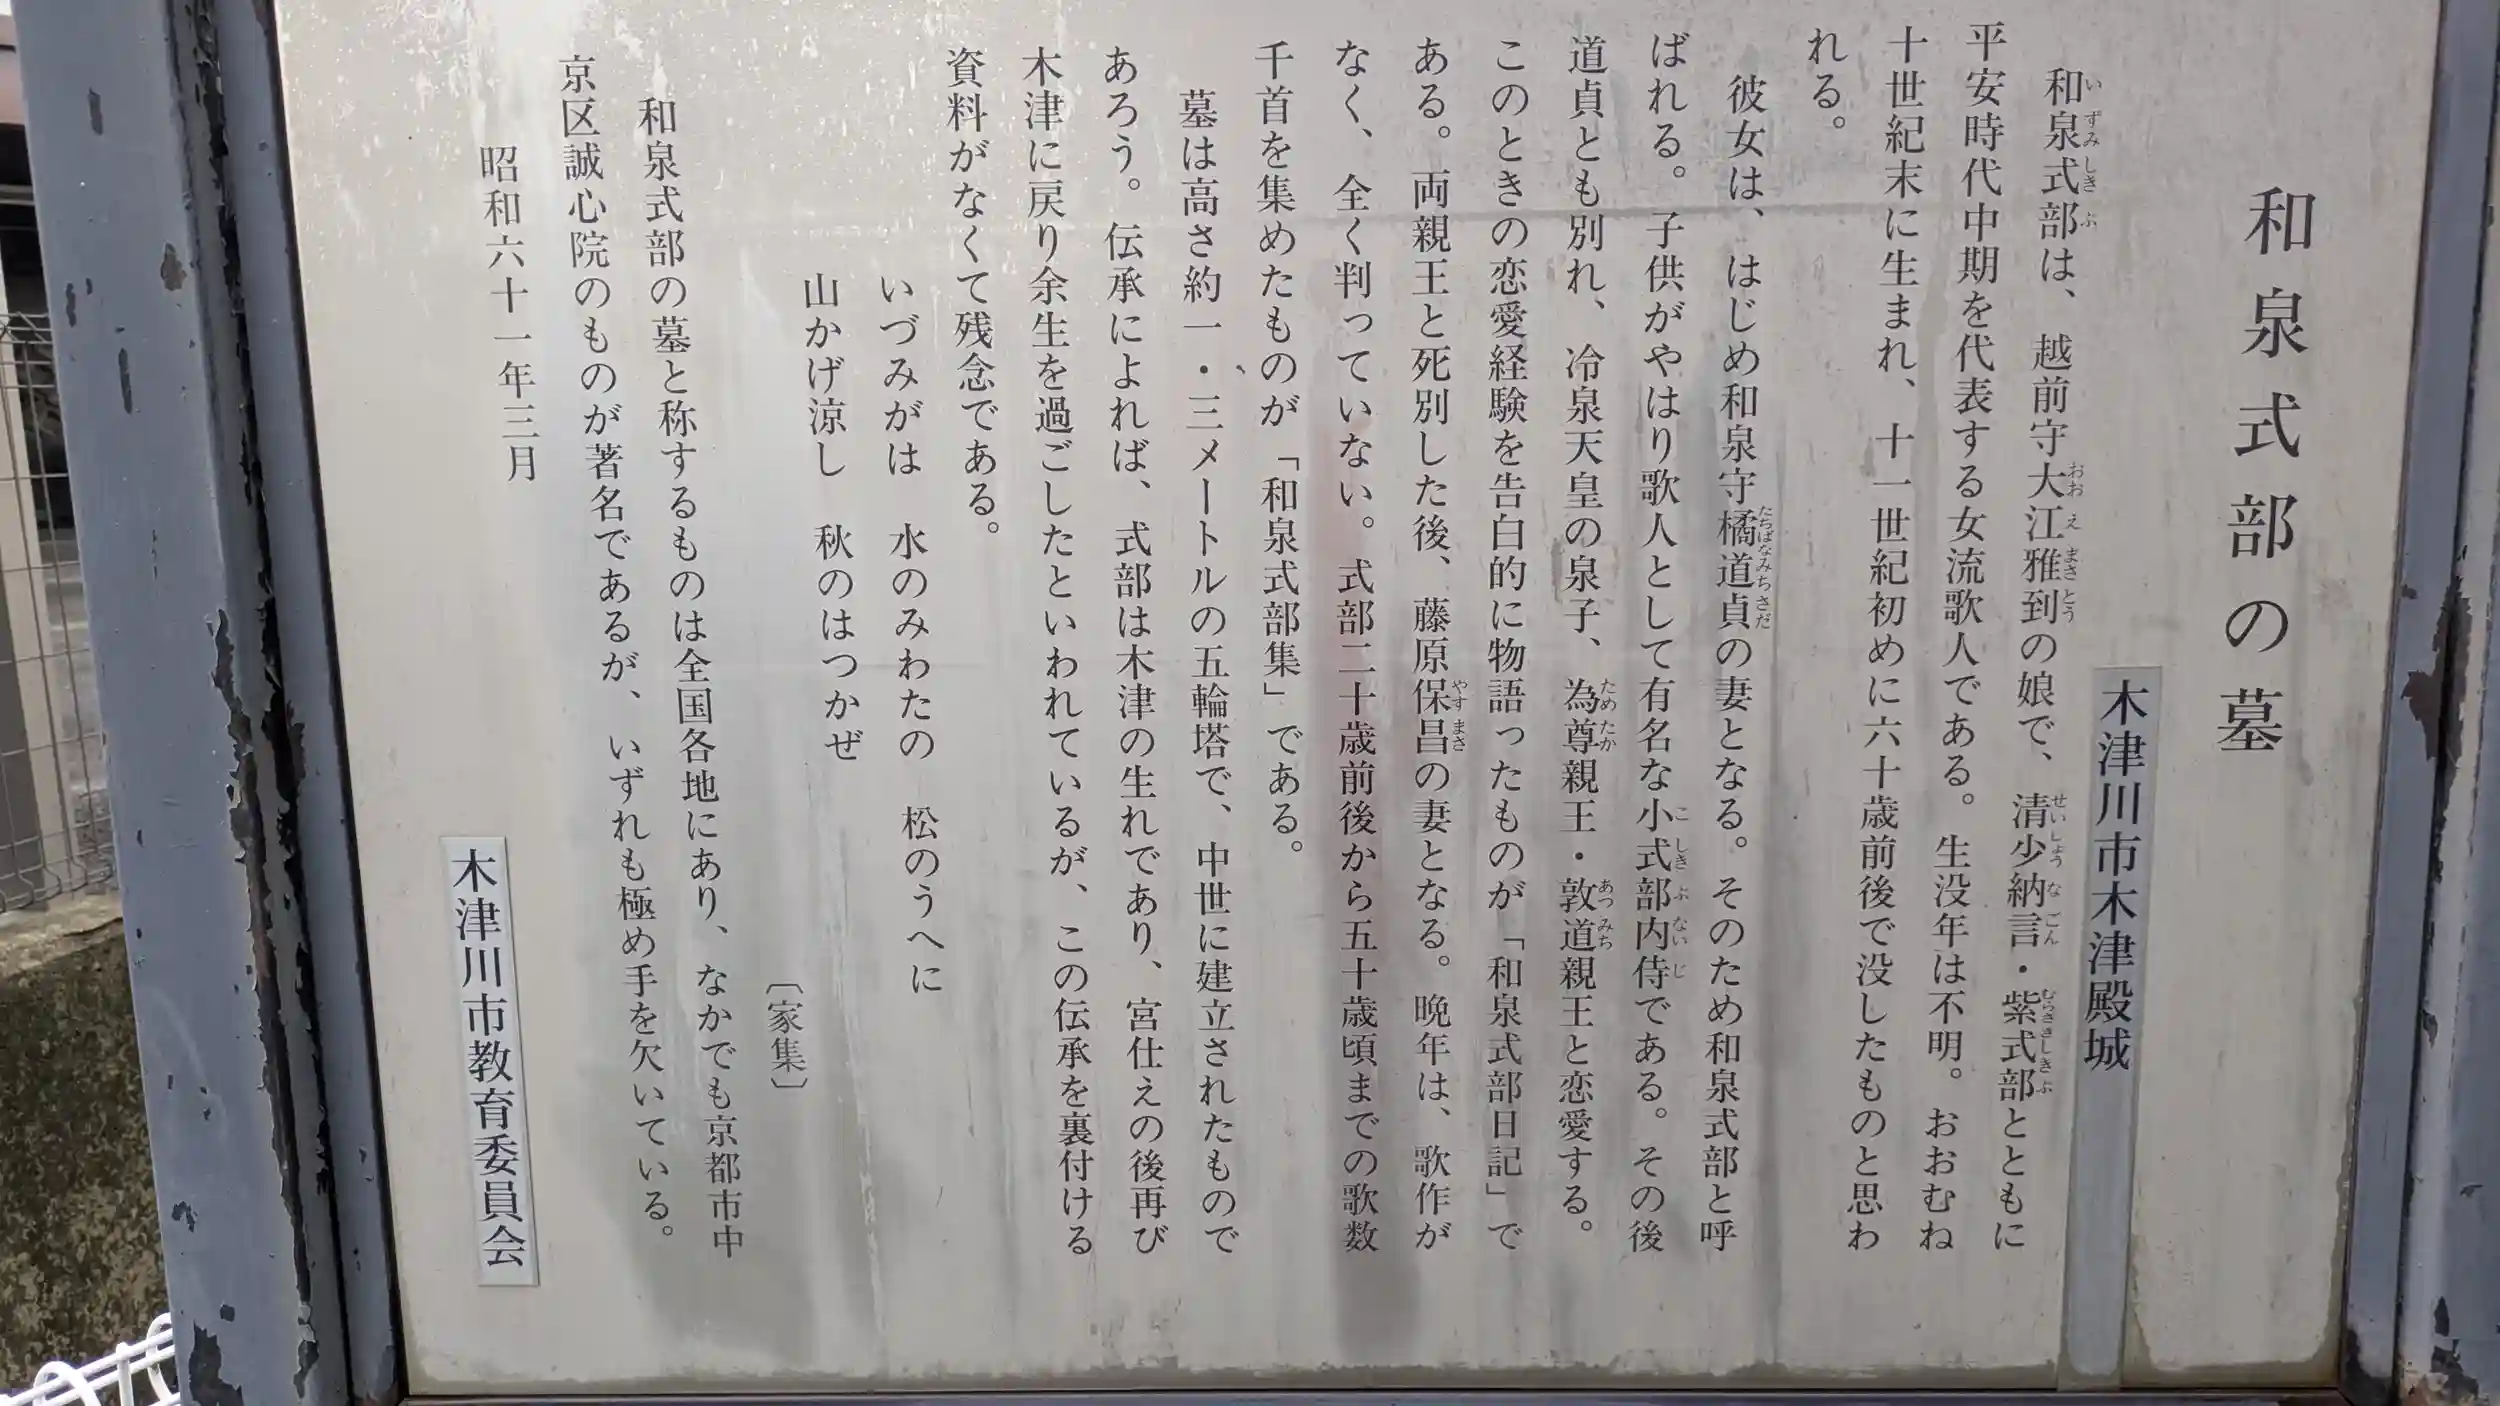 和泉式部の墓
木津川市木津殿城
和泉式部は、越前守大江雅到の娘で、清少納言・紫式部とともに
いずみしきぶ
おおえまさとう
せいしょうなごん
むらさきしきぶ
平安時代中期を代表する女流歌人である。生没年は不明。おおむね
十世紀末に生まれ、十一世紀初めに六十歳前後で没したものと思わ
れる。
彼女は、はじめ和泉守橘道貞の妻となる。そのため和泉式部と呼
たちばなみちさだ
ばれる。子供がやはり歌人として有名な小式部内侍である。その後
こしきぶないじ
道貞とも別れ、冷泉天皇の泉子、為尊親王・敦道親王と恋愛する。
ためたか
あつみち
このときの恋愛経験を告白的に物語ったものが「和泉式部日記」で
ある。両親王と死別した後、藤原保昌の妻となる。晩年は、歌作が
やすまさ
なく、全く判っていない。式部二十歳前後から五十歳頃までの歌数
千首を集めたものが「和泉式部集」である。
墓は高さ約一・三メートルの五輪塔で、中世に建立されたもので
あろう。伝承によれば、式部は木津の生れであり、宮仕えの後再び
木津に戻り余生を過ごしたといわれているが、この伝承を裏付ける
資料がなくて残念である。
いづみがは 水のみわたの 松のうへに
山かげ涼し 秋のはつかぜ
〔家集〕
和泉式部の墓と称するものは全国各地にあり、なかでも京都市中
京区誠心院のものが著名であるが、いずれも極め手を欠いている。
昭和六十一年三月
木津川市教育委員会